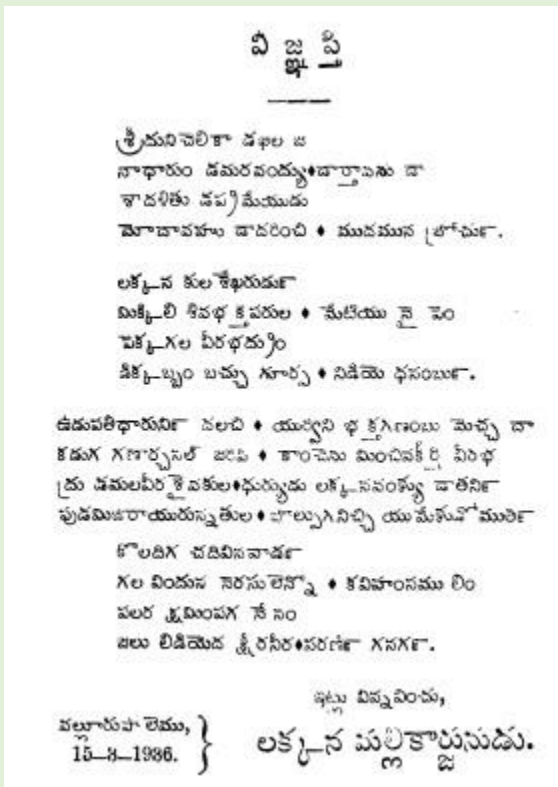 విజ్ఞప్తి
శ్రీదుని చెలికా డఖిల జ
నాధారుం డమరవంద్యు♦డార్తావనుడా
శాదళితు డప్రమేయుడు
మోదావహు డాదరించి ♦ ముదమున బ్రోచున్.
లక్క_న కుల శేఖరుడున్
మిక్కిలి శివభక్తపరుల ♦ మేటియు నై పెం
పెక్క_గల వీరభద్రుం
డిక్క_బ్బం బచ్చు గూర్ప ♦ నిడియె ధనంబున్.
ఉడుపతిధారునిన్ దలచి ♦ యుర్విని భక్తగణంబు మెచ్చ దా
కడుగ గణార్చనల్ జరిపి ♦ కాంచెను మించినకీర్తి వీరభ
ద్రు డమలవీరశైవకుల♦ధుర్యుడు లక్క_నవంశ్యు డాతనిన్
పుడమిజిరాయురున్నతుల♦
కొలదిగ చదివినవాడన్
గల విందున నెరసులెన్నో ♦ కవిహంసము లిం
పలర క్షమింపగ నే నం
జలు లిడియెద క్షీరనీర♦సరణిన్ గనగన్.
ఇట్లు విన్నవించు,
వల్లూరుపాలెము,
15_3_1936.
లక్క_న మల్లికార్జునుడు.